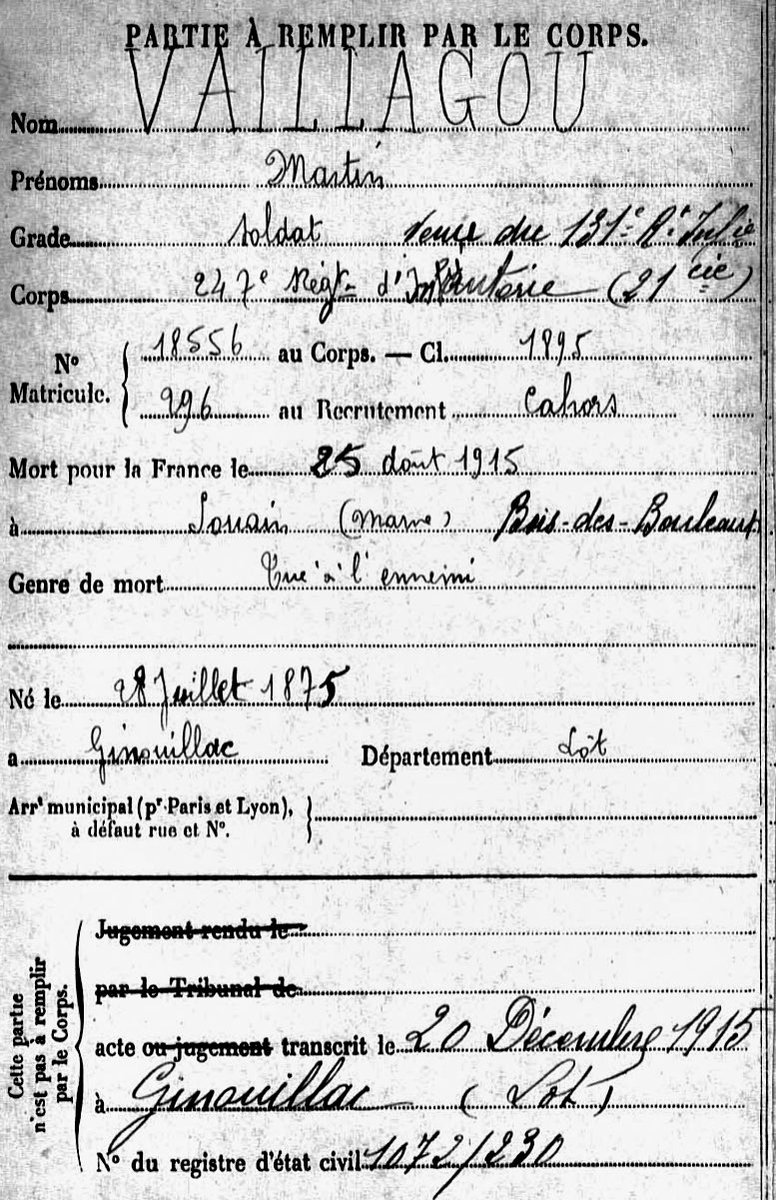 PARTIE À REMPLIR PAR LE CORPS.
Nom VAILLAGOU
Prénoms Martin
Grade soldat venu du 131e Rt Infie
Corps 247e Régt d'Infanterie (21 cie)
No Matricule. { 18556 au Corps. — Cl. 1895
996 au Recrutement Cahors
Mort pour la France le 25 août 1915
à Souain (Marne) Bois-des-Bouleaux
Genre de mort Tué à l'ennemi
Né le 28 Juillet 1875
a Ginouillac Département Lot
Arrt municipal (pr Paris et Lyon),
à défaut rue et No. }
Cette partie n'est pas à remplir par le Corps.
Jugement rendu le
par le Tribunal de
acte ou jugement transcrit le 20 Décembre 1915
à Ginouillac (Lot)
No du registre d'état civil 1072/230